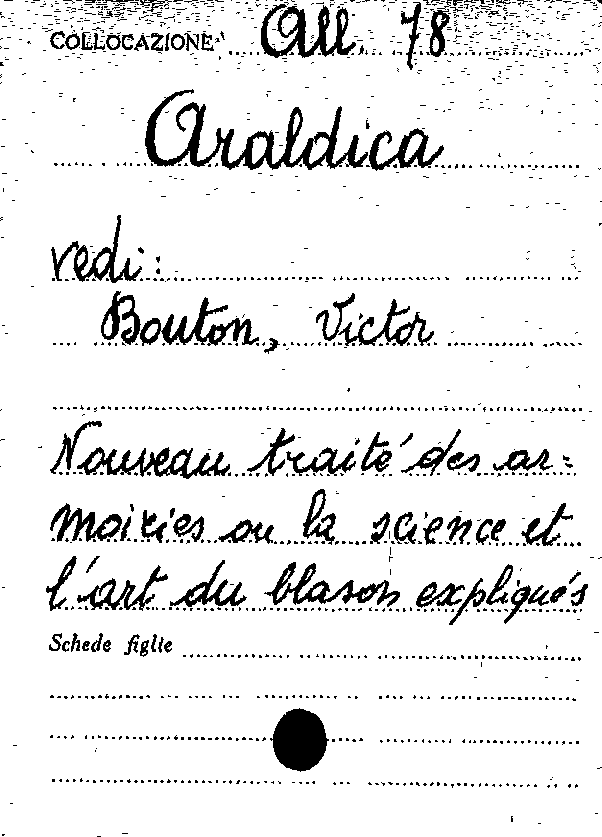 COLLOCAZIONE All. 78
Araldica
vedi:
Bouton, Victor
Nouveau traité des ar=
moiries ou la science et
l'art du blason expliqués
Schede figlie